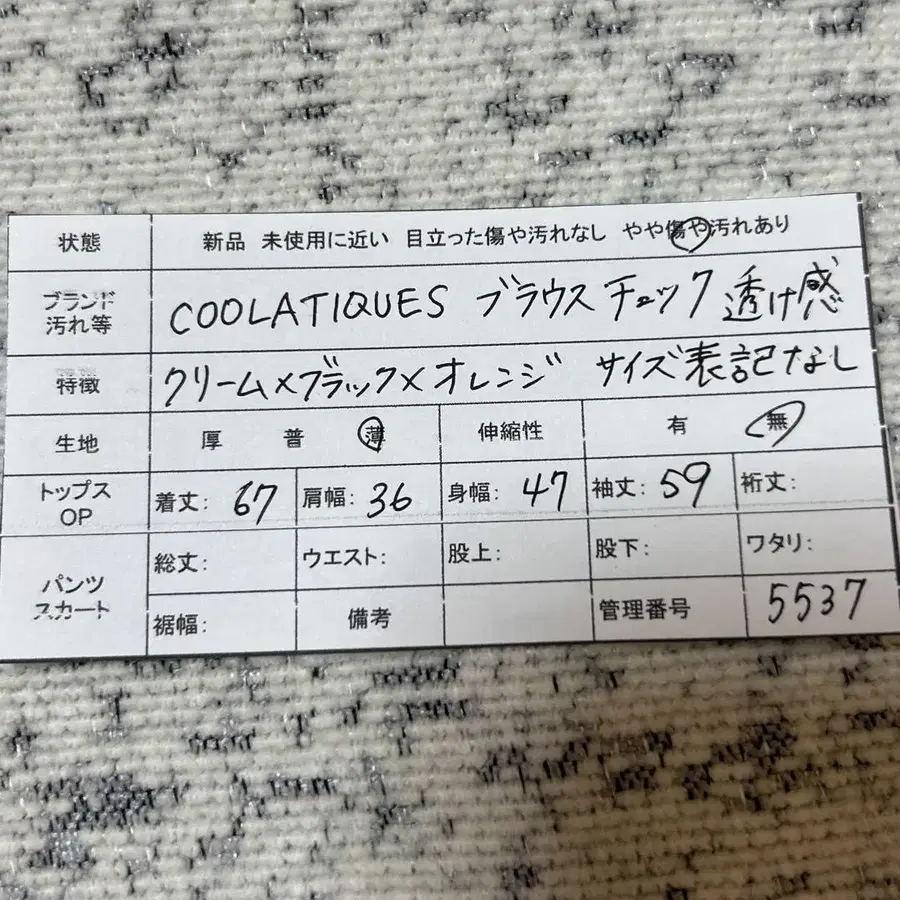 状態 新品 未使用に近い 目立った傷や汚れなし やや傷や汚れあり
ブランド 汚れ等 COOLATIQUES ブラウス チェック 透け感
特徴 クリーム×ブラック×オレンジ サイズ表記なし
生地 厚 普 薄 伸縮性 有 無
トップス OP 着丈: 67 肩幅: 36 身幅: 47 袖丈: 59 裄丈:
パンツ スカート 総丈: ウエスト: 股上: 股下: ワタリ:
裾幅: 備考 管理番号 5537